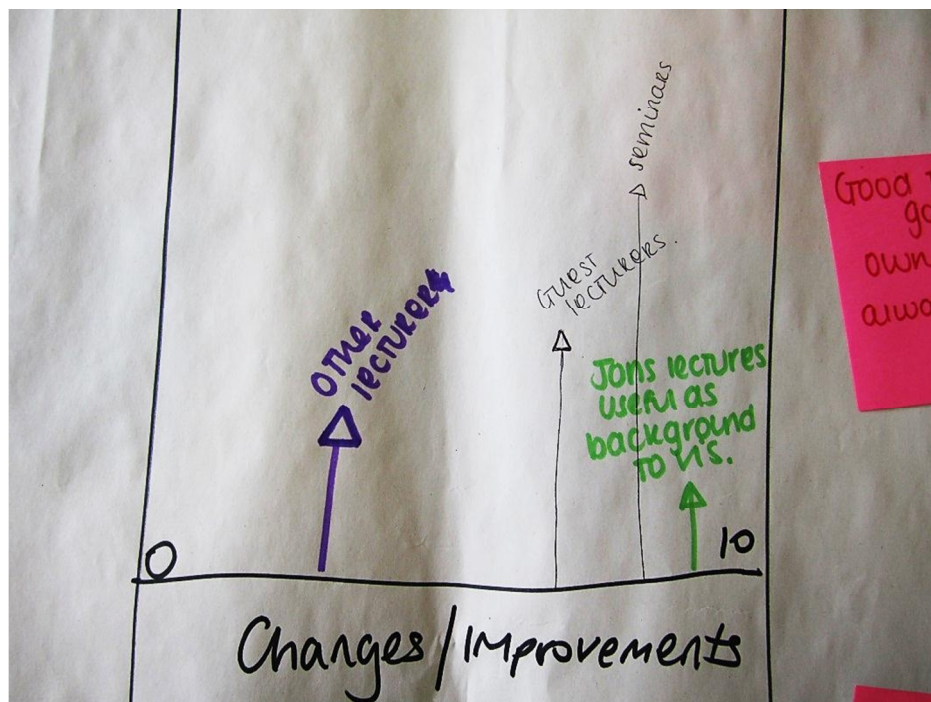 seminars
Guest
lecturers.
Other
lecturers
Jons lectures
useful as
background
to VIS.
0
10
Changes/Improvements
Good
own